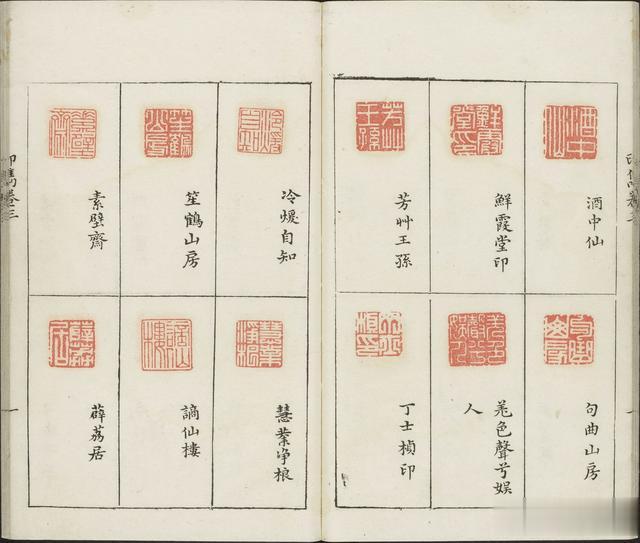 酒中仙
鮮霞堂印
芳艸王孫
句曲山房
羌色聲兮娛
人
丁士楨印
冷煖自知
笙鶴山房
素壁齋
慧業净根
謫仙樓
薜荔居
印雋卷三
一